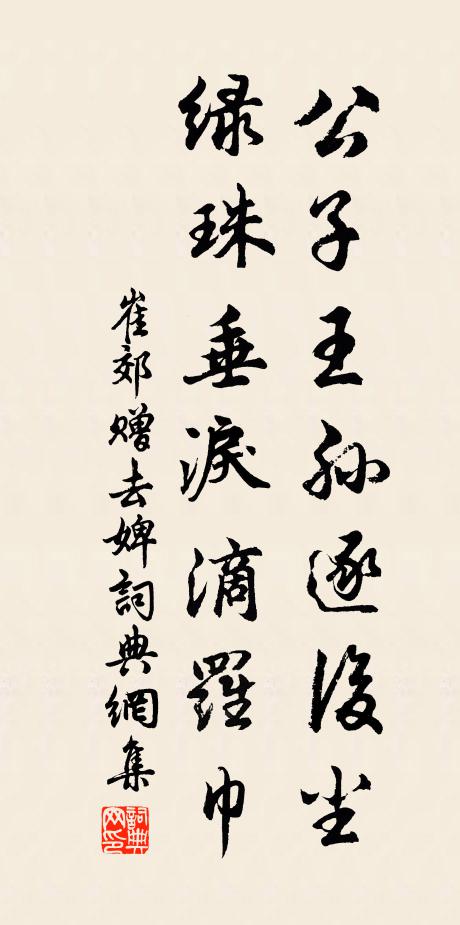 公子王孙逐後尘
绿珠垂淚滴羅巾
崔郊赠去婢詞典網集
詞典网印